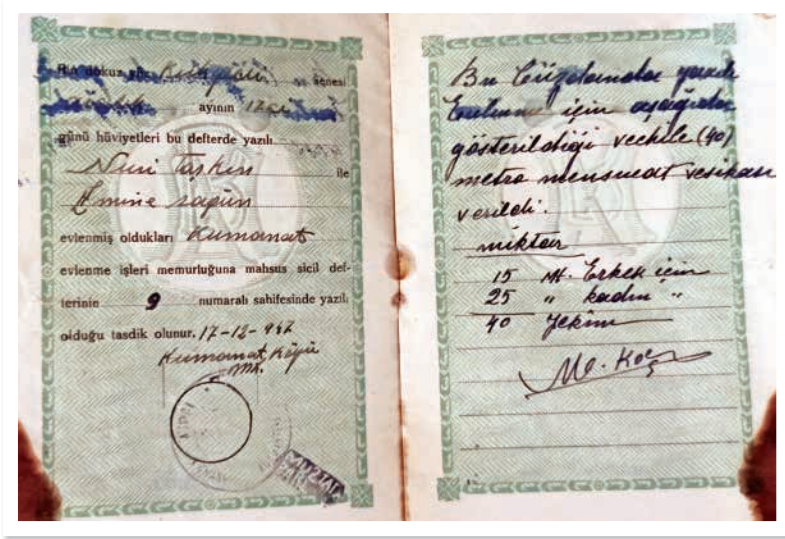 Bin dokuz yüz Kırk yedi senesi
Aralık ayının 17 çi
günü hüviyetleri bu defterde yazılı
Nuri Taşkın ile
Emine
evlenmiş oldukları Kumanat
evlenme işleri memurluğuna mahsus sicil def-
terinin 9 numaralı sahifesinde yazılı
olduğu tasdik olunur. 17-12-947
Kumanat Köyü
Mh.
Bu Cüzdanda yazılı
için aşağıda
gösterildiği vechile (40)
metre mensucat vesikası
verildi.
miktar
15 Mt. Erkek için
25 " kadın "
40 Yekûn
M. Koç